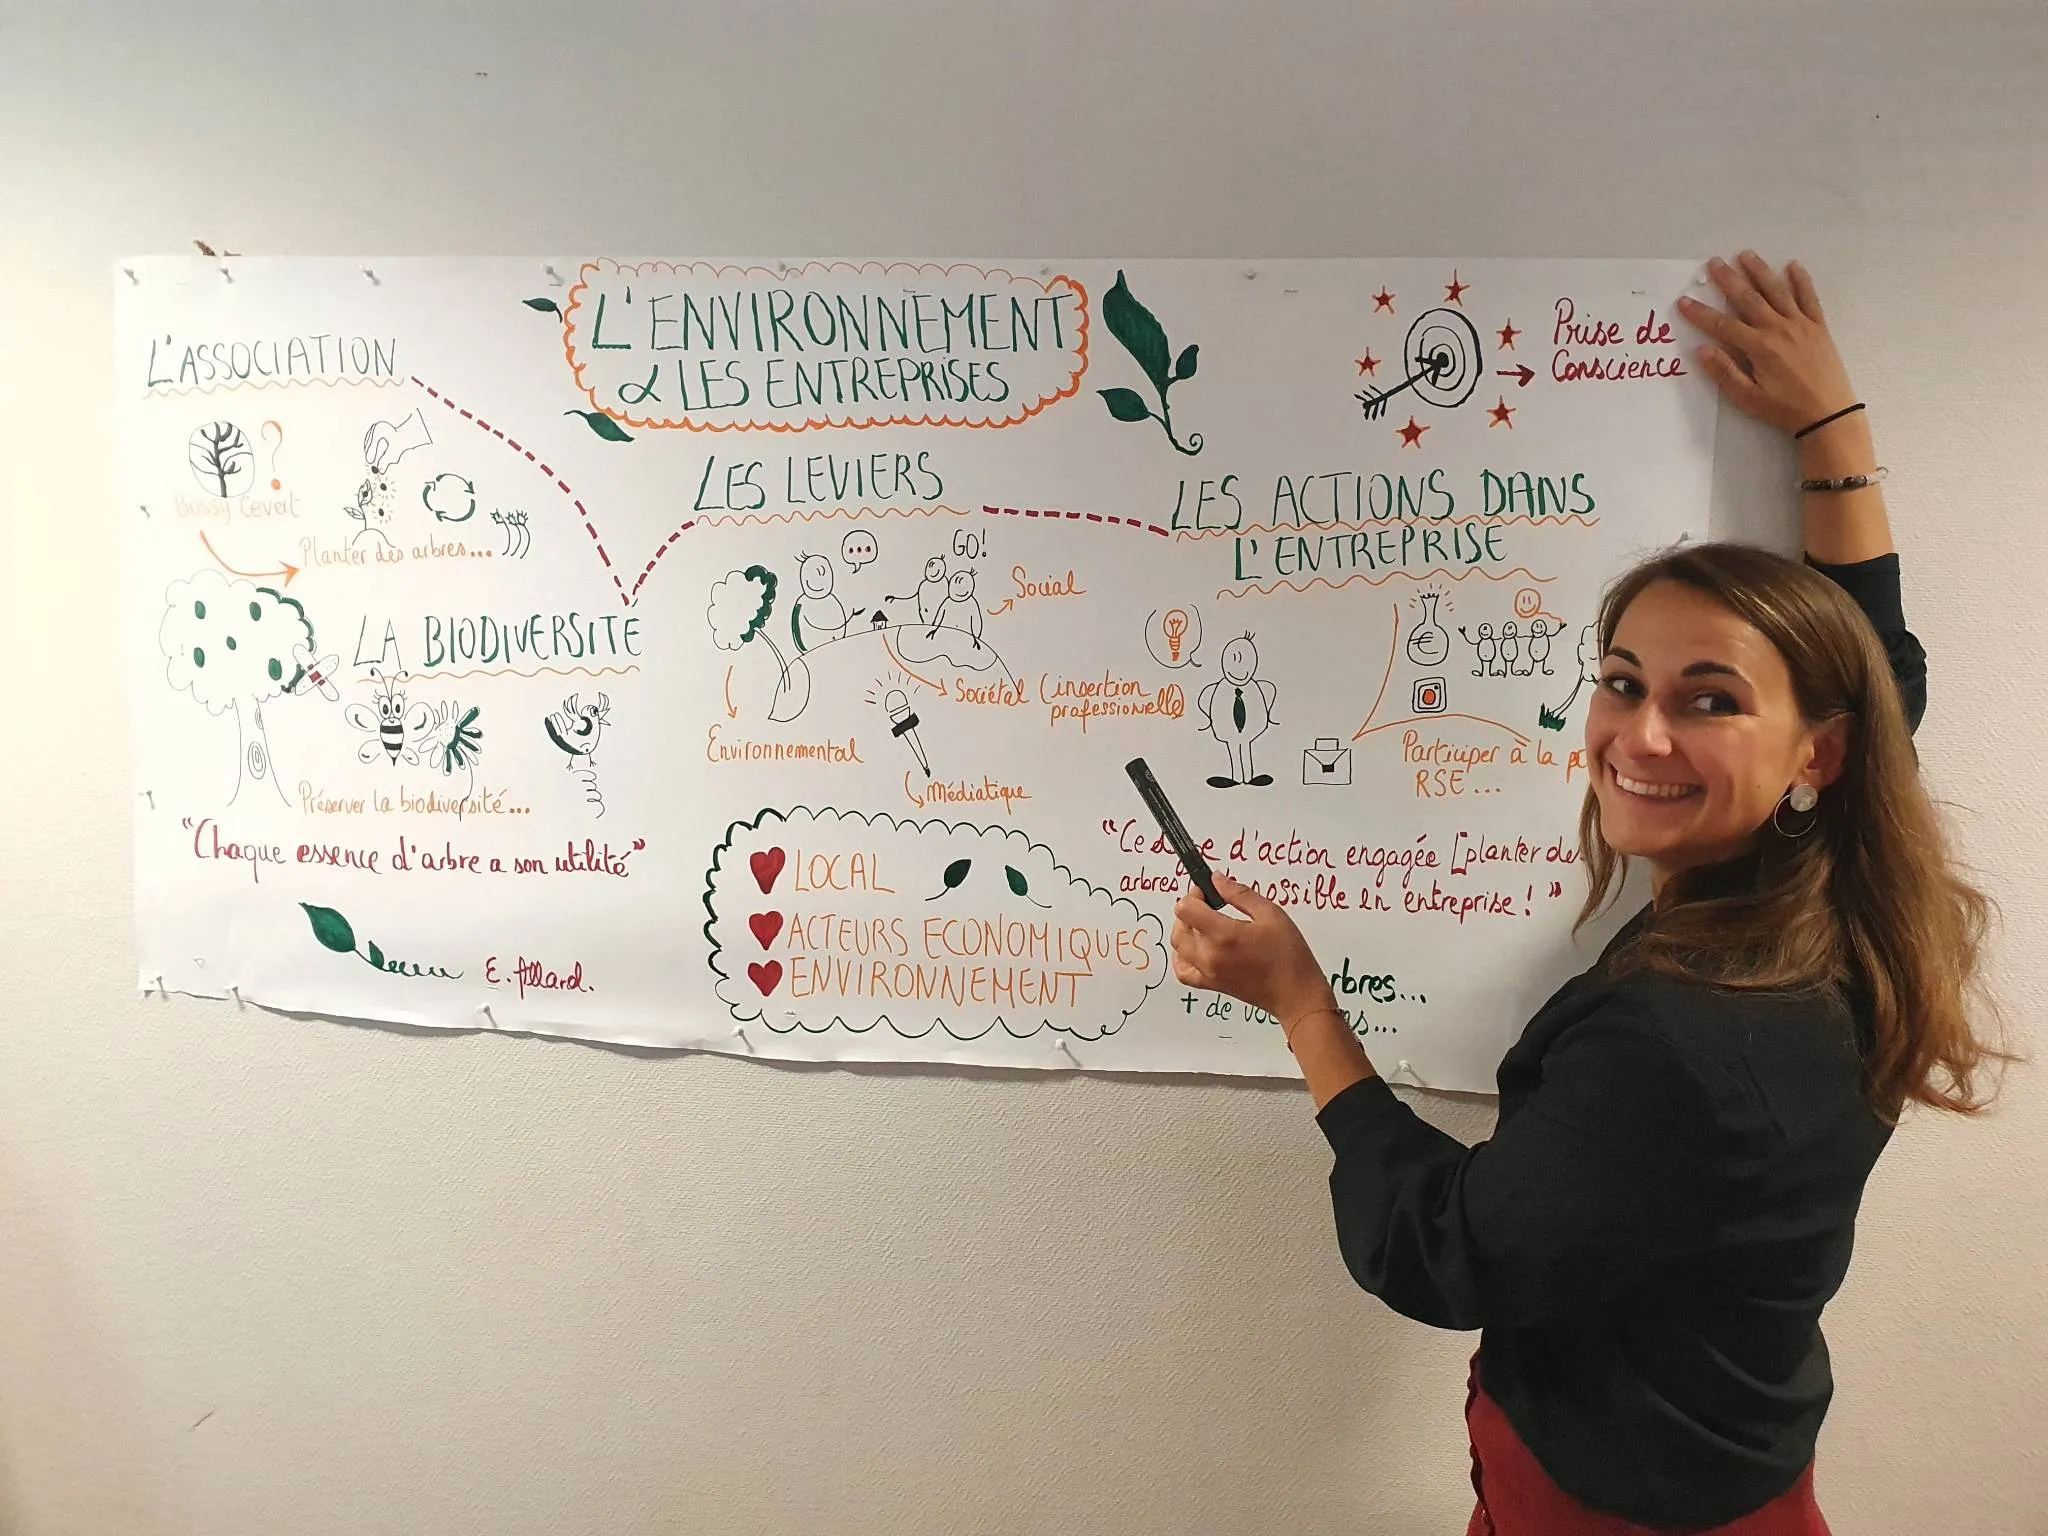 L'ENVIRONNEMENT
& LES ENTREPRISES
L'ASSOCIATION
?
Bussy Cevert
Planter des arbres...
LA BIODIVERSITÉ
Préserver la biodiversité...
"Chaque essence d'arbre a son utilité"
E. Allard.
LES LEVIERS
...
GO!
Social
Sociétal (insertion
professionnelle)
Environnemental
Médiatique
LOCAL
ACTEURS ECONOMIQUES
ENVIRONNEMENT
Prise de
Conscience
LES ACTIONS DANS
L'ENTREPRISE
€
Participer à la
RSE...
"Ce d'action engagée [planter des
arbres possible en entreprise!"
+ de